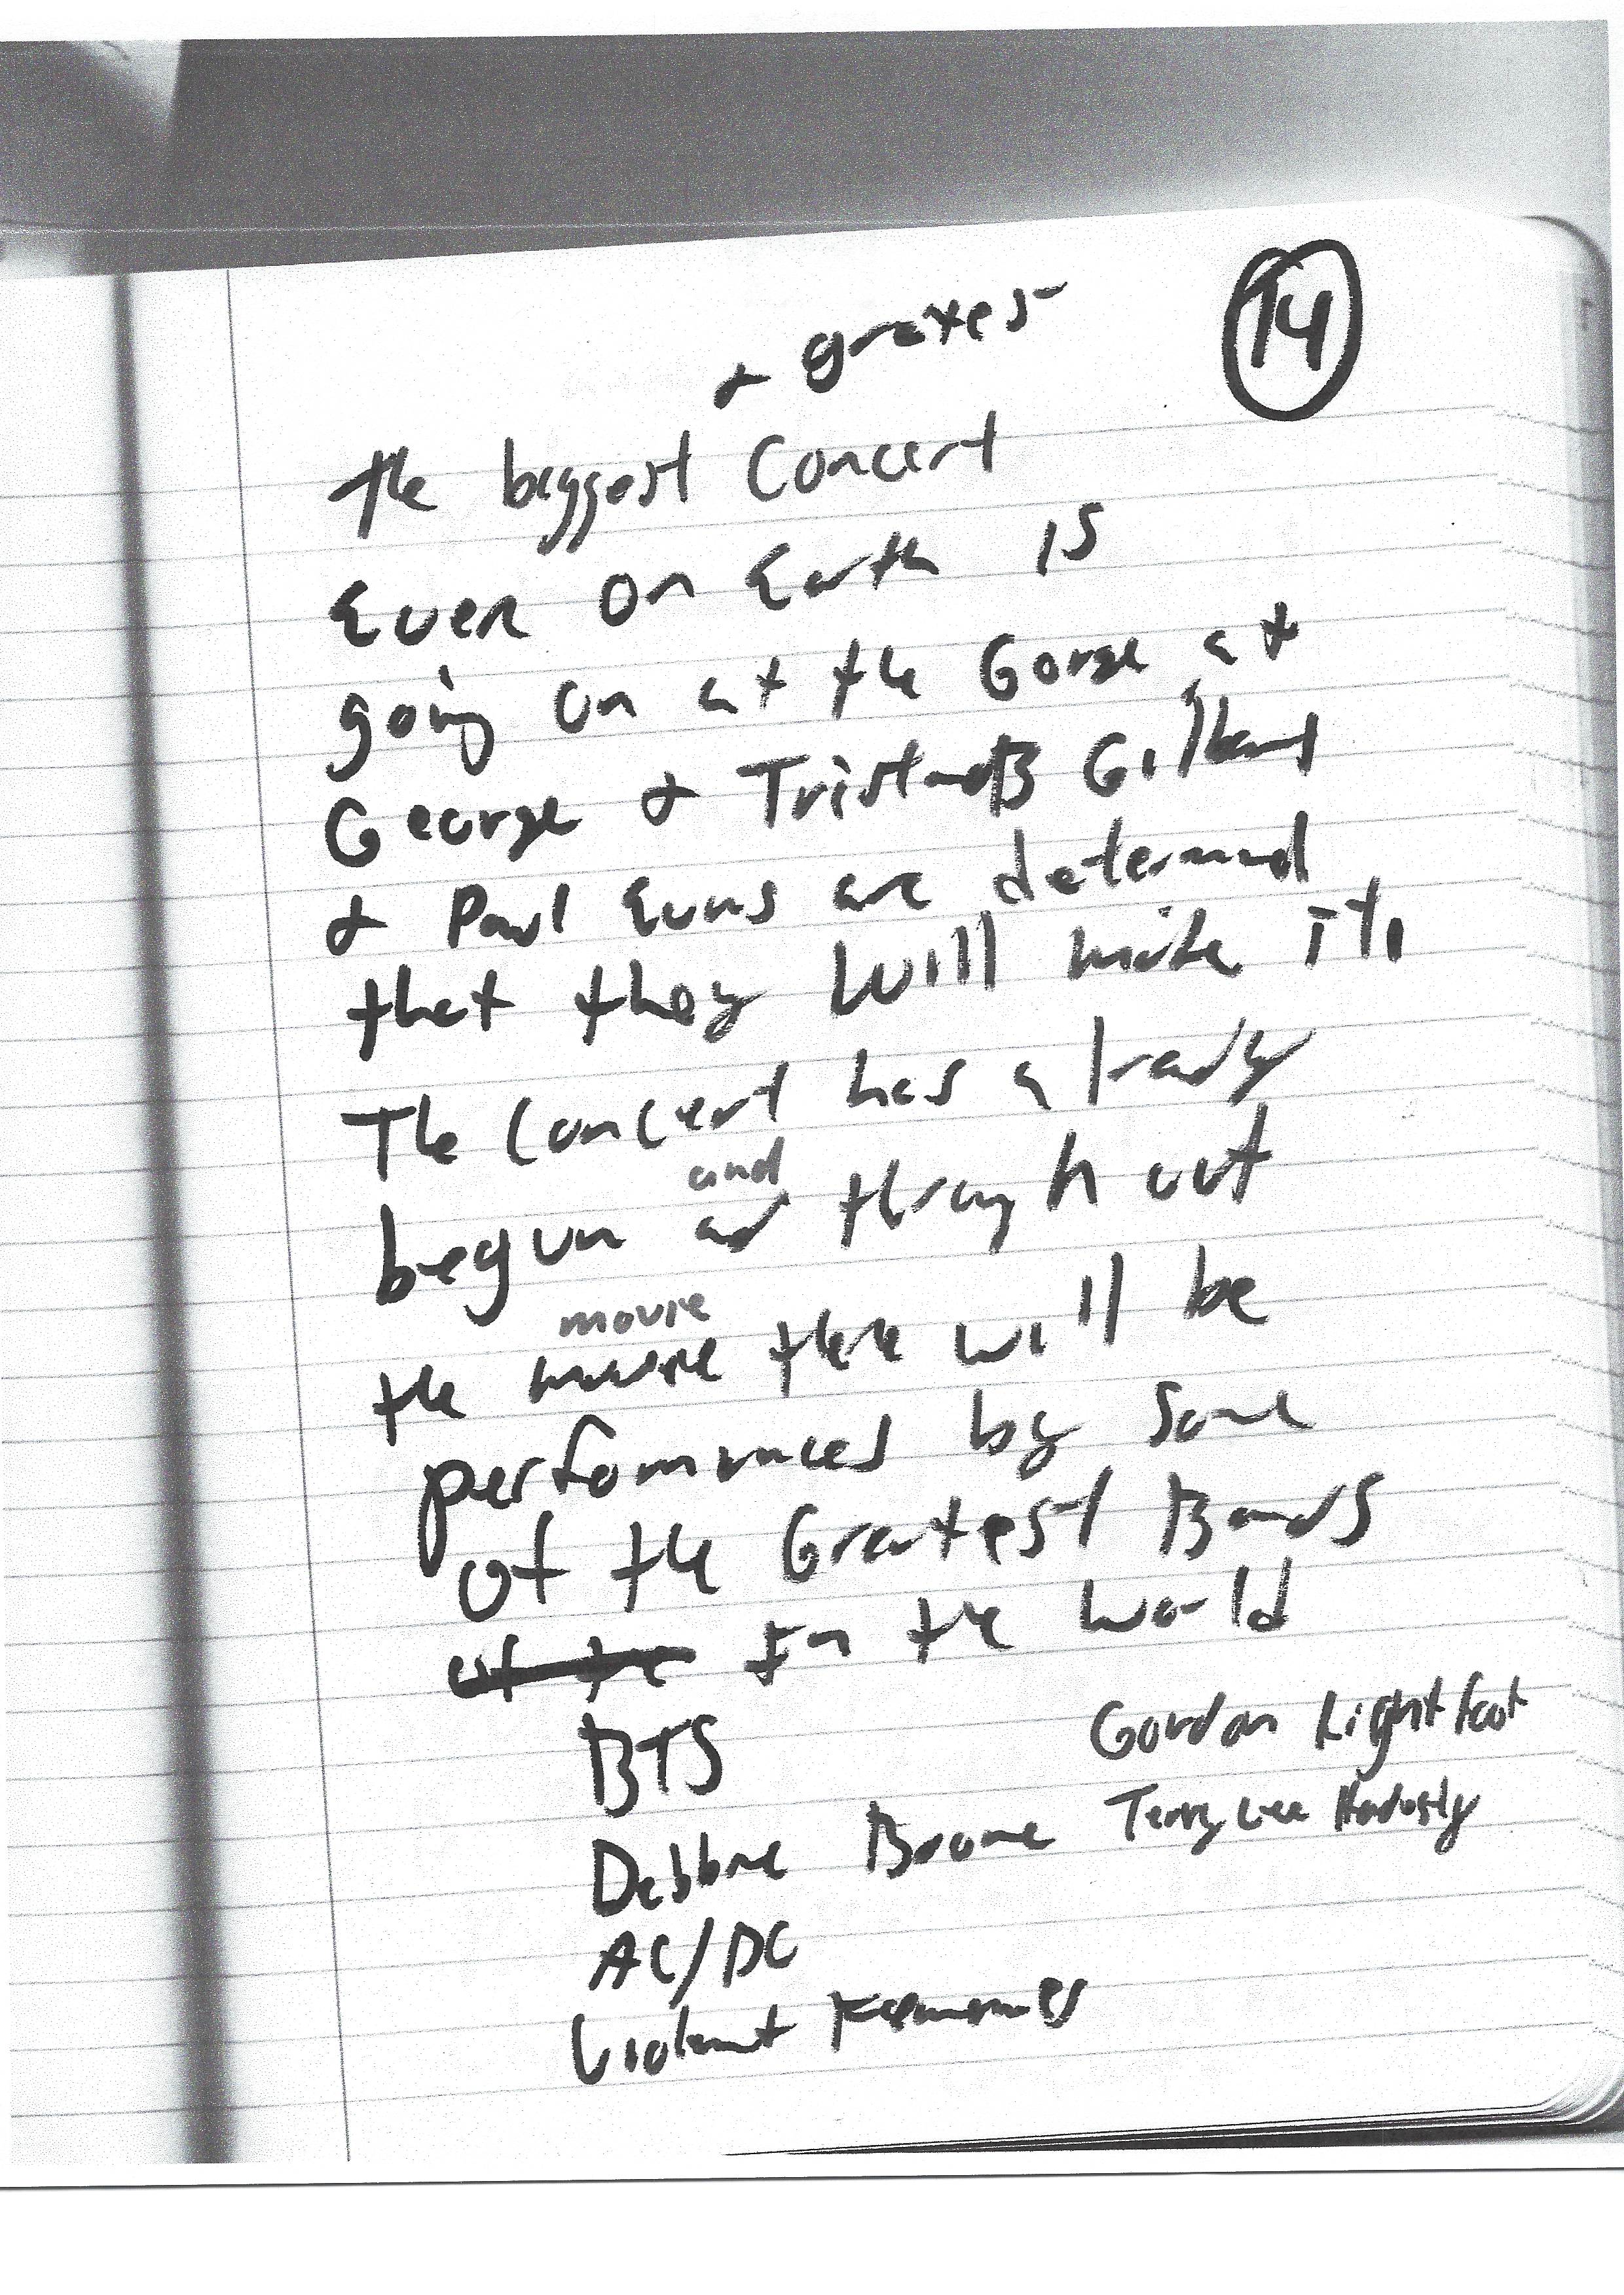 14
& greatest
The biggest Concert
Ever on Earth is
going on at the Gorge at
George & Gilbert
& Paul Evans are determined
that they will make it!
The Concert has already
begun and through out
and
the movie there will be
movie
performances by some
of the Greatest Bands
of the In the World
BTS
Gordon Lightfoot
Debbie Boone Terry Lee
AC/DC
Violent Femmes